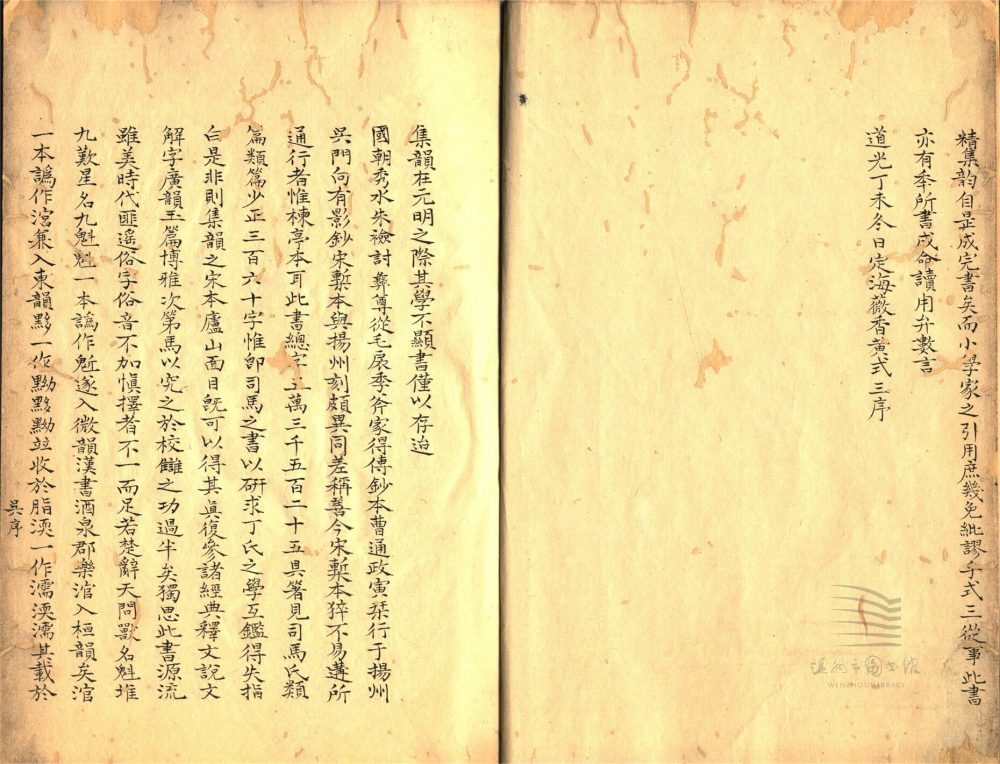 精集韵自是成完書矣而小學家之引用庶幾免紕謬乎式三從事此書
亦有本所書成命讀用弁數言
道光丁未冬日定海薇香黄式三序
集韻在元明之際其學不顯書僅以存迨
國朝秀水朱檢討彝尊從毛扆季斧家得傳鈔本曹通政寅栞行于揚州
吳門向有影鈔宋槧本與揚州刻頗異同差稱善今宋槧本猝不易遘所
通行者惟楝亭本耳此書總字五萬三千五百二十五具箸見司馬氏類
篇類篇少正三百六十字惟卽司馬之書以研求丁氏之學互鑑得失指
白是非則集韻之宋本廬山面目旣可以得其眞復參諸經典釋文說文
解字廣韻玉篇博雅次第馬以究之於校讎之功過半矣獨思此書源流
雖美時代匪遥俗字俗音不加愼擇者不一而足若楚辭天問獸名魁堆
九歎星名九魁魁一本譌作鬿遂入微韻漢書酒泉郡樂涫入桓韻矣涫
一本譌作涫兼入東韻黟一作黝黟黝竝收於脂渜一作濡渜濡其載於
吳序
温州市圖書館
WENZHOU LIBRARY